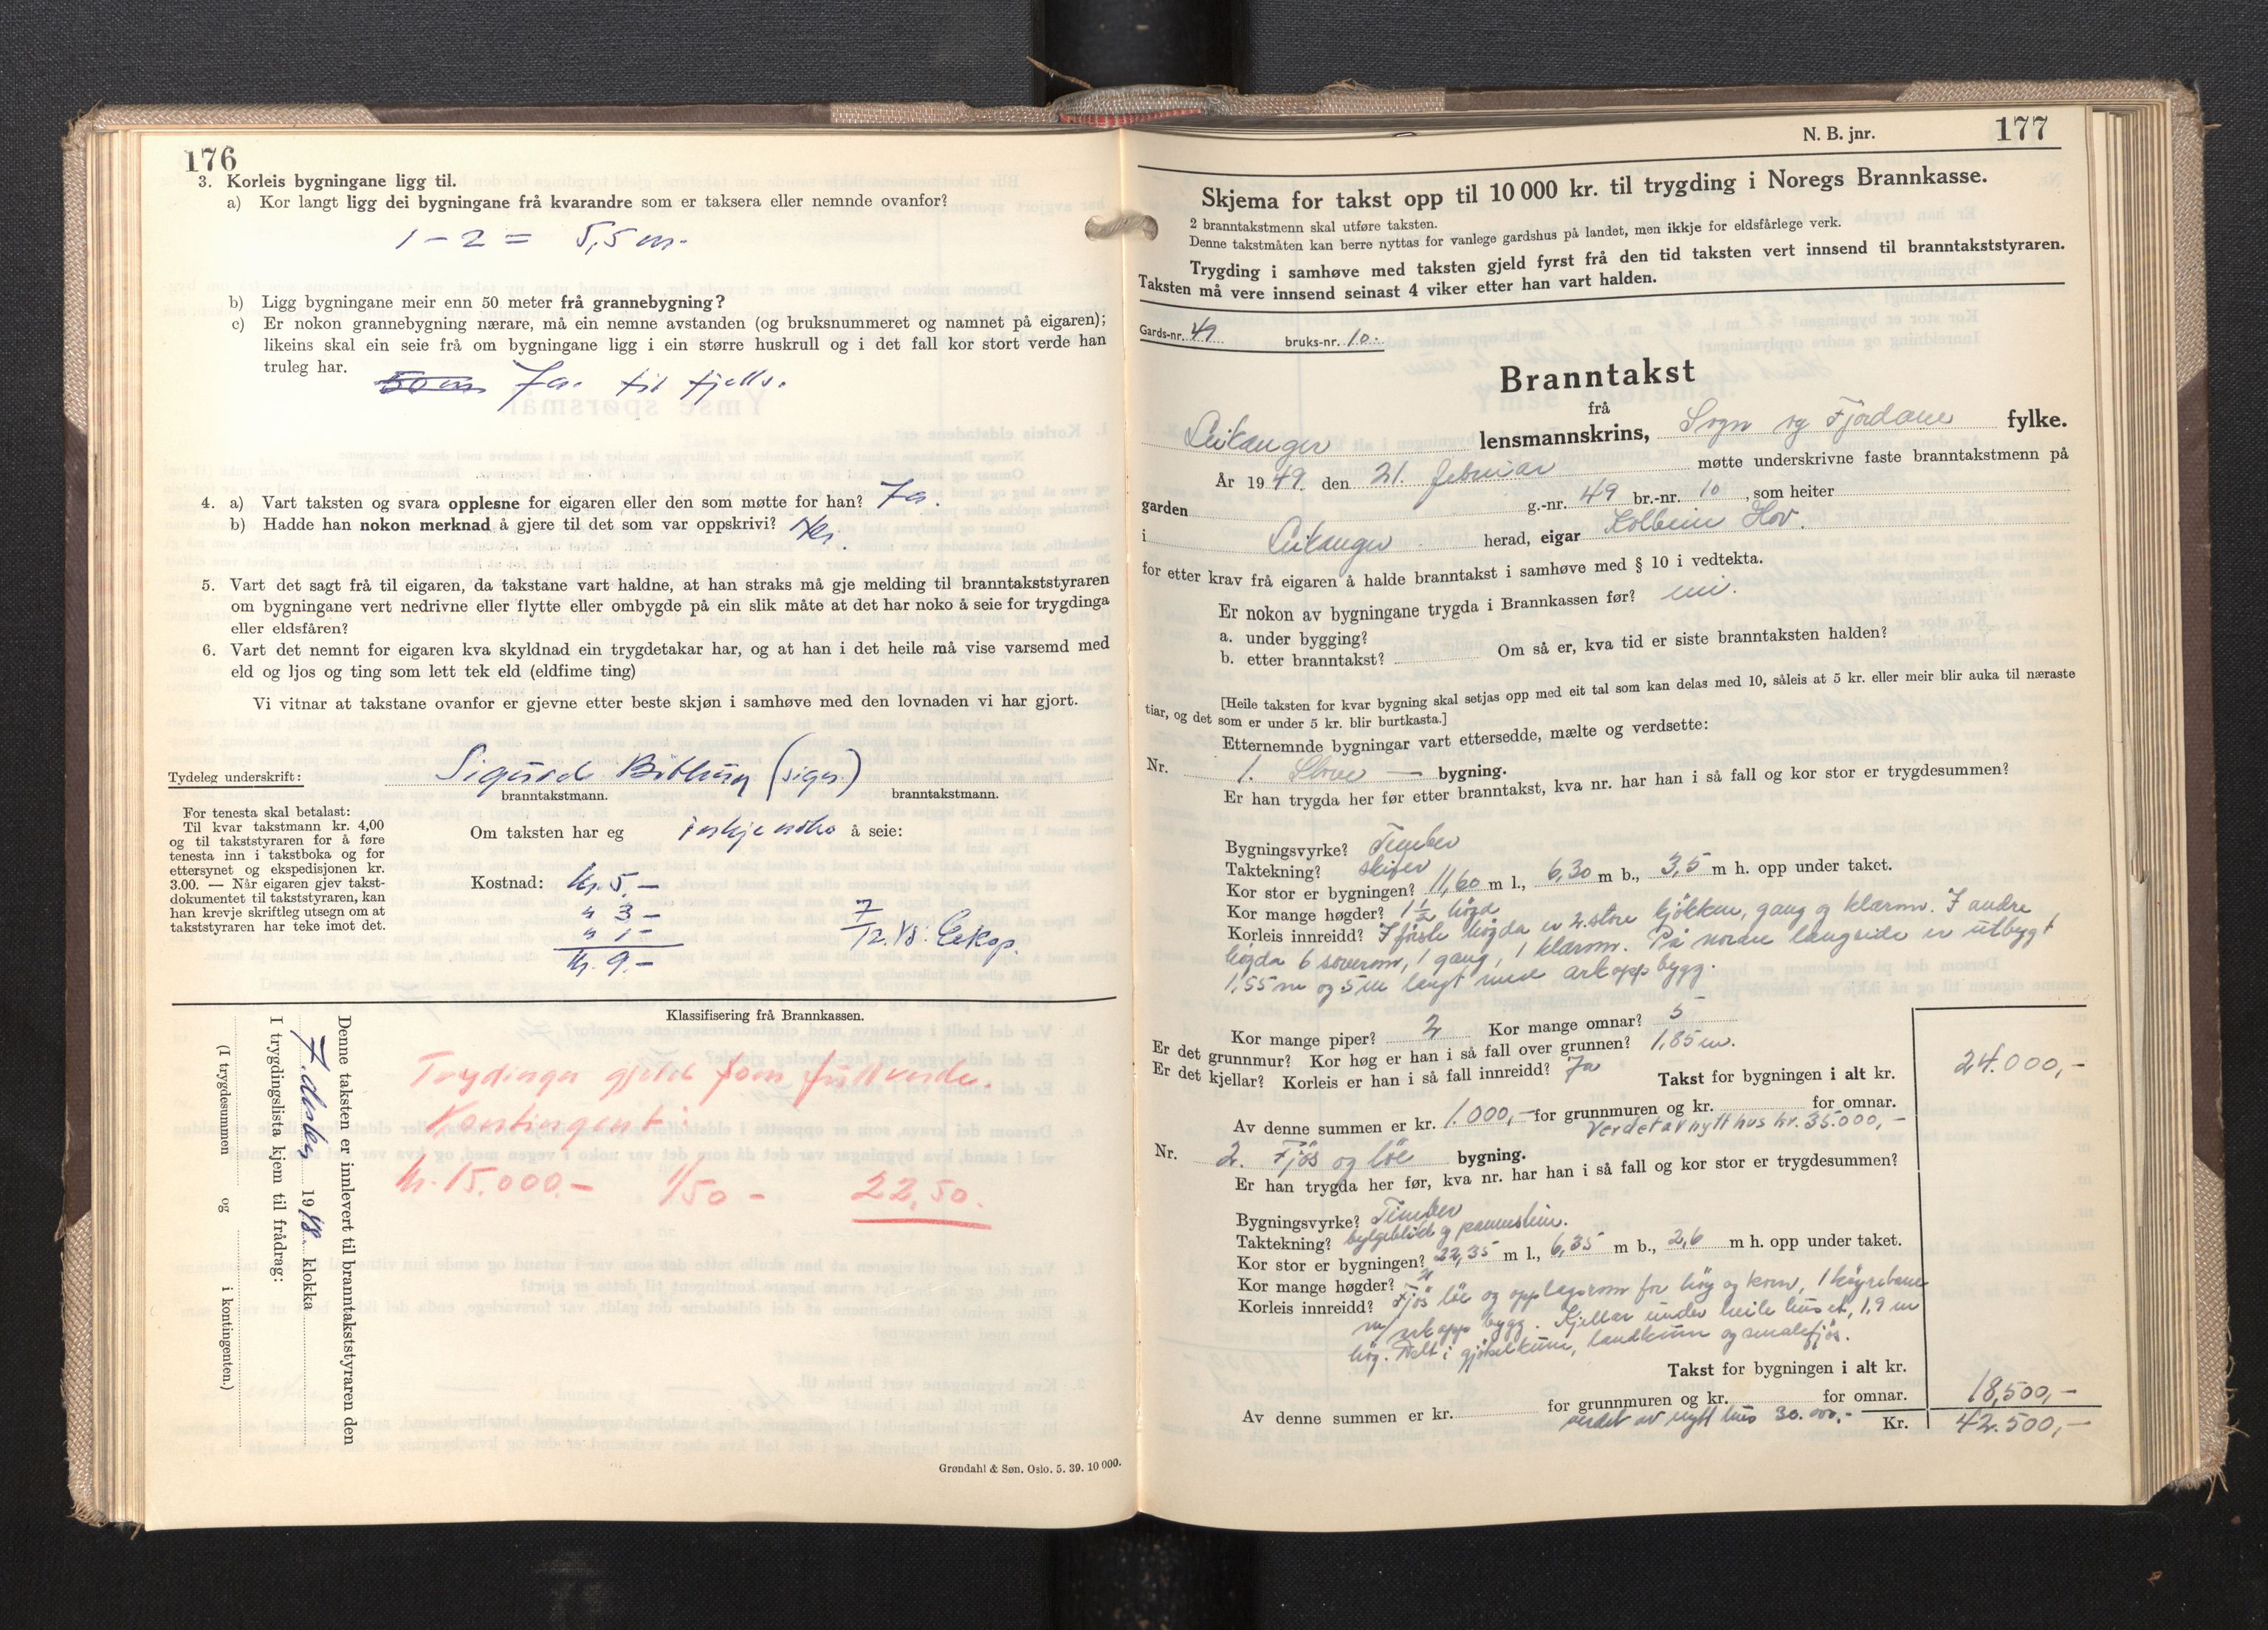 176
3. Korleis bygningane ligg til.
a) Kor langt ligg dei bygningane frå kvarandre som er taksera eller nemnde ovanfor?
1 – 2 = 5,5 m.
b) Ligg bygningane meir enn 50 meter frå grannebygning?
c) Er nokon grannebygning nærare, må ein nemne avstanden (og bruksnummeret og namnet på eigaren);
likeins skal ein seie frå om bygningane ligg i ein større huskrull og i det fall kor stort verde han
truleg har.
50 m Ja. til fjells.
4. a) Vart taksten og svara opplesne for eigaren eller den som møtte for han? Ja.
b) Hadde han nokon merknad å gjere til det som var oppskrivi? Nei.
5. Vart det sagt frå til eigaren, da takstane vart haldne, at han straks må gje melding til branntakststyraren
om bygningane vert nedrivne eller flytte eller ombygde på ein slik måte at det har noko å seie for trygdinga
eller eldsfåren?
6. Vart det nemnt for eigaren kva skyldnad ein trygdetakar har, og at han i det heile må vise varsemd med
eld og ljos og ting som lett tek eld (eldfime ting)
Vi vitnar at takstane ovanfor er gjevne etter beste skjøn i samhøve med den lovnaden vi har gjort.
Tydeleg underskrift: Sigurd (sign.)
branntakstmann. branntakstmann.
For tenesta skal betalast:
Til kvar takstmann kr. 4,00
og til takststyraren for å føre
tenesta inn i takstboka og for
ettersynet og ekspedisjonen kr.
3.00. — Når eigaren gjev takst-
dokumentet til takststyraren, kan
han krevje skriftleg utsegn om at
takststyraren har teke imot det.
Om taksten har eg inkje noko å seie:
Kostnad: Kr. 5.–
" 3 –
" 1 –
Kr. 9.–
7/12. 48.
Klassifisering frå Brannkassen.
Trygdinga gjeld som fullverde.
Kontingent:
kr. 15.000.– 1/50 – 22,50.
Denne taksten er innlevert til branntakststyraren den
7. desbr. 1948. klokka
I trygdingslista kjem til frådrag:
(I trygdesummen og i kontingenten.)
Grøndahl & Søn. Oslo. 5. 39. 10 000.
N. B. jnr. 177
Skjema for takst opp til 10 000 kr. til trygding i Noregs Brannkasse.
2 branntakstmenn skal utføre taksten.
Denne takstmåten kan berre nyttas for vanlege gardshus på landet, men ikkje for eldsfårlege verk.
Trygding i samhøve med taksten gjeld fyrst frå den tid taksten vert innsend til branntakststyraren.
Taksten må vere innsend seinast 4 viker etter han vart halden.
Gards-nr. 49 bruks-nr. 10.
Branntakst
frå
Leikanger lensmannskrins, Sogn og Fjordane fylke.
År 1949. den 21. februar møtte underskrivne faste branntakstmenn på
garden g.-nr. 49 br.-nr. 10, som heiter
i Leikanger herad, eigar Kolbein Hov.
for etter krav frå eigaren å halde branntakst i samhøve med § 10 i vedtekta.
Er nokon av bygningane trygda i Brannkassen før? nei.
a. under bygging?
b. etter branntakst? Om så er, kva tid er siste branntaksten halden?
[Heile taksten for kvar bygning skal setjas opp med eit tal som kan delas med 10, såleis at 5 kr. eller meir blir auka til næraste
tiar, og det som er under 5 kr. blir burtkasta.]
Etternemnde bygningar vart ettersedde, mælte og verdsette:
Nr. 1. Stove — bygning.
Er han trygda her før etter branntakst, kva nr. har han i så fall og kor stor er trygdesummen?
Bygningsvyrke? Timber
Taktekning? skifer
Kor stor er bygningen? 11,60 m l., 6,30 m b., 3,5 m h. opp under taket.
Kor mange høgder? 1 1/2 høgd
Korleis innreidd? I første høgda er 2 store kjökken, gang og klærom. I andre
høgda 6 soverom, 1 gang, 1 klærom. På nordre langside er utbygt
1,55 m og 5 m langt med arkoppbygg.
Kor mange piper? 2 Kor mange omnar? 5
Er det grunnmur? Kor høg er han i så fall over grunnen? 1,85 m.
Er det kjellar? Korleis er han i så fall innreidd? Ja
Takst for bygningen i alt kr. 24.000,–
Av denne summen er kr. 1.000,– for grunnmuren og kr. for omnar.
Verdet av nytt hus kr. 35.000,–
Nr. 2. Fjös og löe bygning.
Er han trygda her før, kva nr. har han i så fall og kor stor er trygdesummen?
Bygningsvyrke? Timber
Taktekning? bylgeblikk og pannestein.
Kor stor er bygningen? 22,35 m l., 6,35 m b., 2,6 m h. opp under taket.
Kor mange høgder?
Korleis innreidd? Fjös löe og opplagsrom for höy og korn, 1 köyrebane
m/ arkoppbygg. Kjellar under heile huset, 1,9 m
høg. Delt i gjödselkum, landkum og smalefjös.
Takst for bygningen i alt kr. 18,500,–
Av denne summen er kr. for grunnmuren og kr. for omnar.
verdet av nytt hus 30.000,–
Kr. 42.500,–